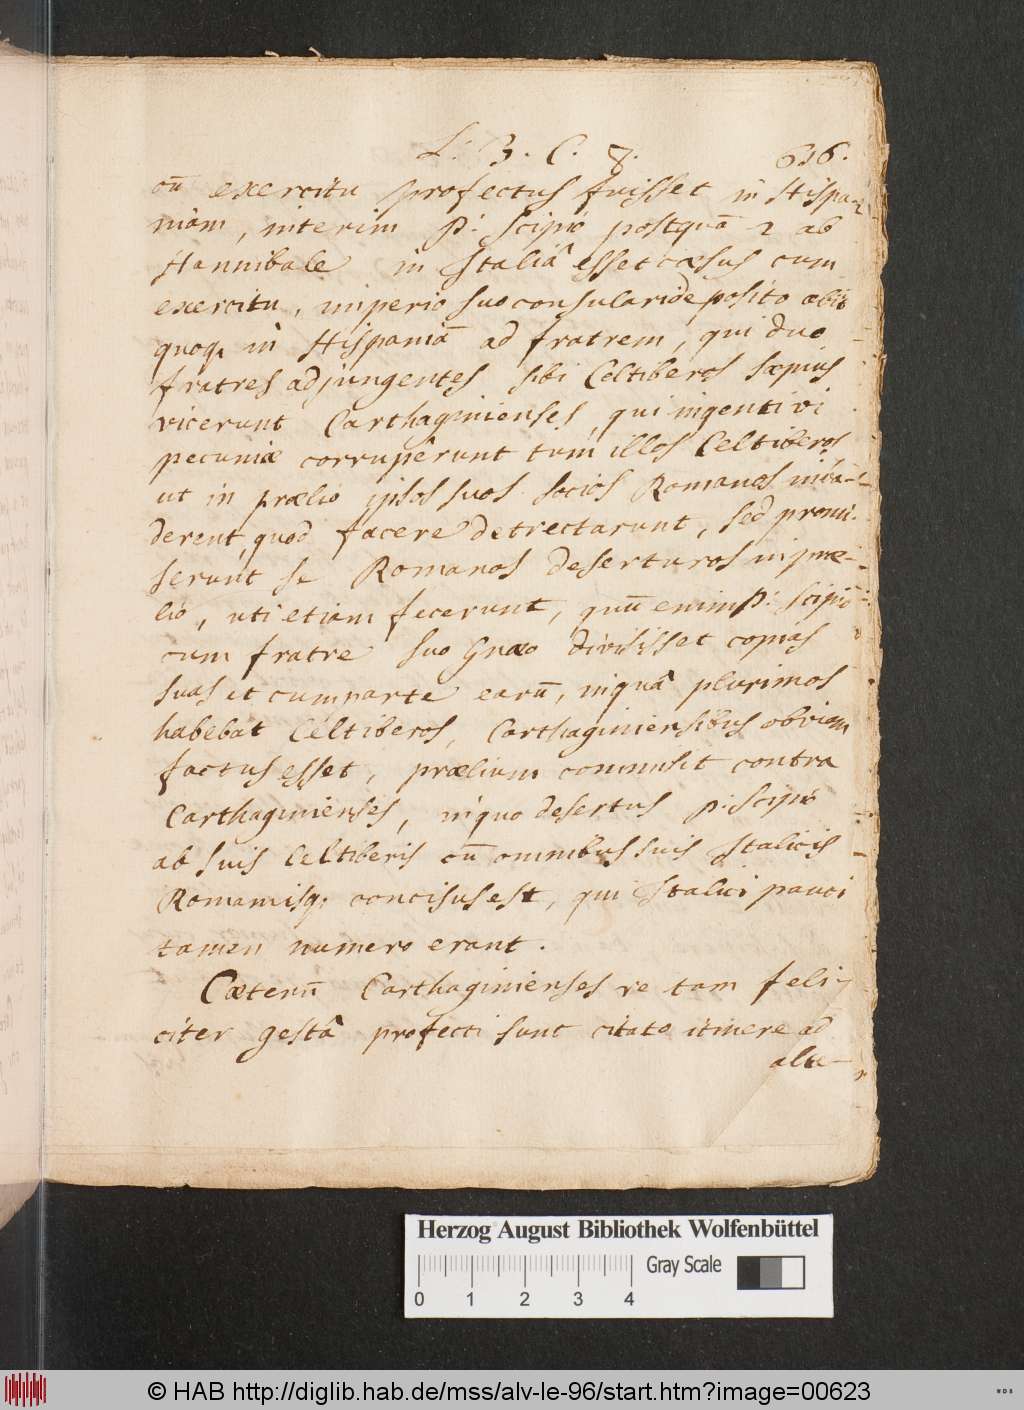 L: 3. C. 8. 616.
cū exercitu profectus fuisset in Hispa-
niam, interim P: Scipio postquā 2 ab
Hannibale in Italiâ esset cæsus cum
exercitu, imperio suo consulari deposito abiit
quoq; in Hispaniā ad fratrem, qui duo
fratres adjungentes sibi Celtiberos sæpius
vicerunt Carthaginienses, qui ingenti vi
pecuniæ corrupêrunt tum illos Celtiberos
ut in prælio ipsos suos socios Romanos inva-
derent, quod facere detrectarunt, sed promi-
serunt se Romanos deserturos in præ-
lio, uti etiam fecerunt, quū enim P: Scipio
cum fratre suo Gnæo divisisset copias
suas et cum parte earū, in quâ plurimos
habebat Celtiberos, Carthaginiensibus obviam
factus esset, prælium commisit contra
Carthaginienses, in quo desertus P: Scipio
ab suis Celtiberis cū omnibus suis Italicis
Romanisq; concisus est, qui Italici pauci
tamen numero erant.
Cæterū Carthaginienses re tam feli-
citer gestâ profecti sunt citato itinere ad
alte-
Herzog August Bibliothek Wolfenbüttel
Gray Scale
0 1 2 3 4
© HAB http://diglib.hab.de/mss/alv-le-96/start.htm?image=00623